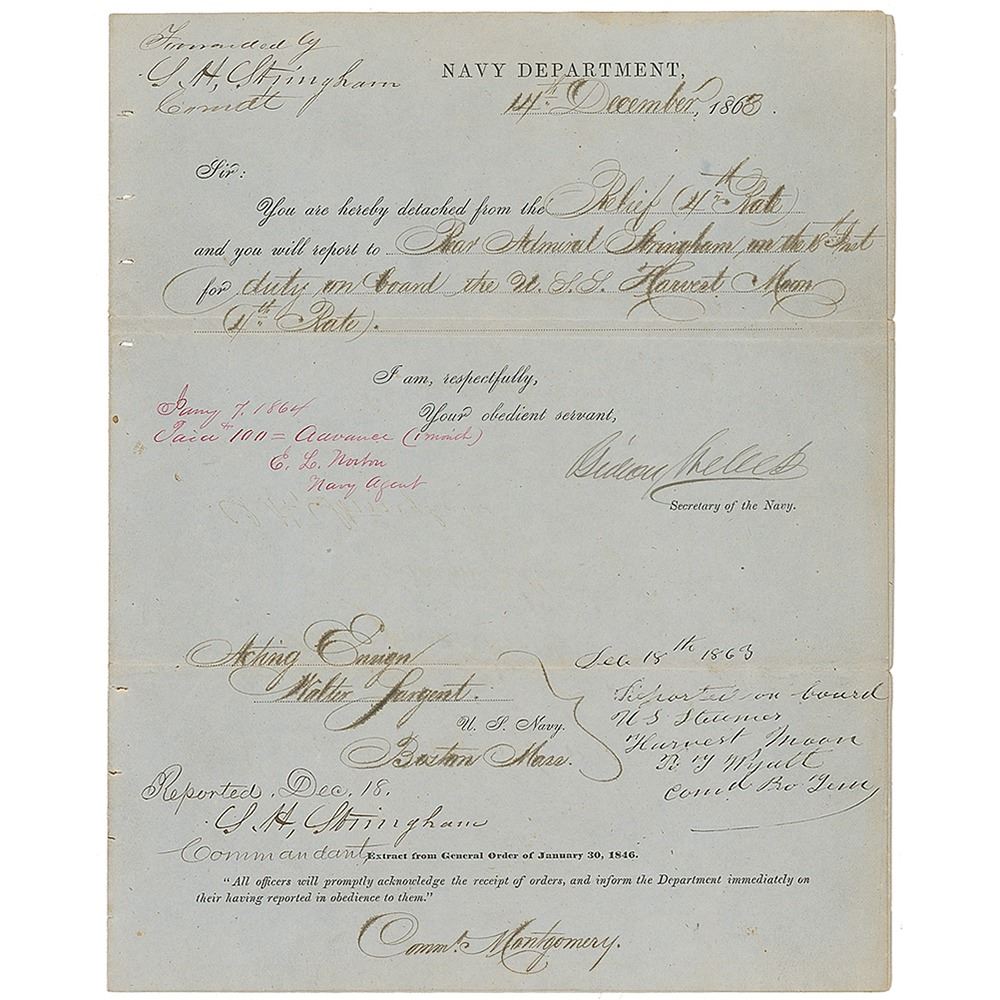 Forwarded by
S. H. Stringham
Comdt
NAVY DEPARTMENT,
14th December, 1863.
Sir:
You are hereby detached from the Relief (4th Rate)
and you will report to Rear Admiral Stringham, on the 18th Inst
for duty on board the U. S. S. Harvest Moon
(4th Rate).
I am, respectfully,
Your obedient servant,
Jany 7. 1864
Paid $ 100 = Advance (1 month)
E. L. Norton
Navy Agent
Gideon Welles
Secretary of the Navy.
Acting Ensign
Walter Sargent.
U. S. Navy.
Boston Mass.
Dec. 18th 1863
Reported on board
U S Steamer
Harvest Moon
Comd Pro Tem
Reported. Dec. 18.
S. H. Stringham
Commandant
Extract from General Order of January 30, 1846.
"All officers will promptly acknowledge the receipt of orders, and inform the Department immediately on
their having reported in obedience to them."
Commt. Montgomery.